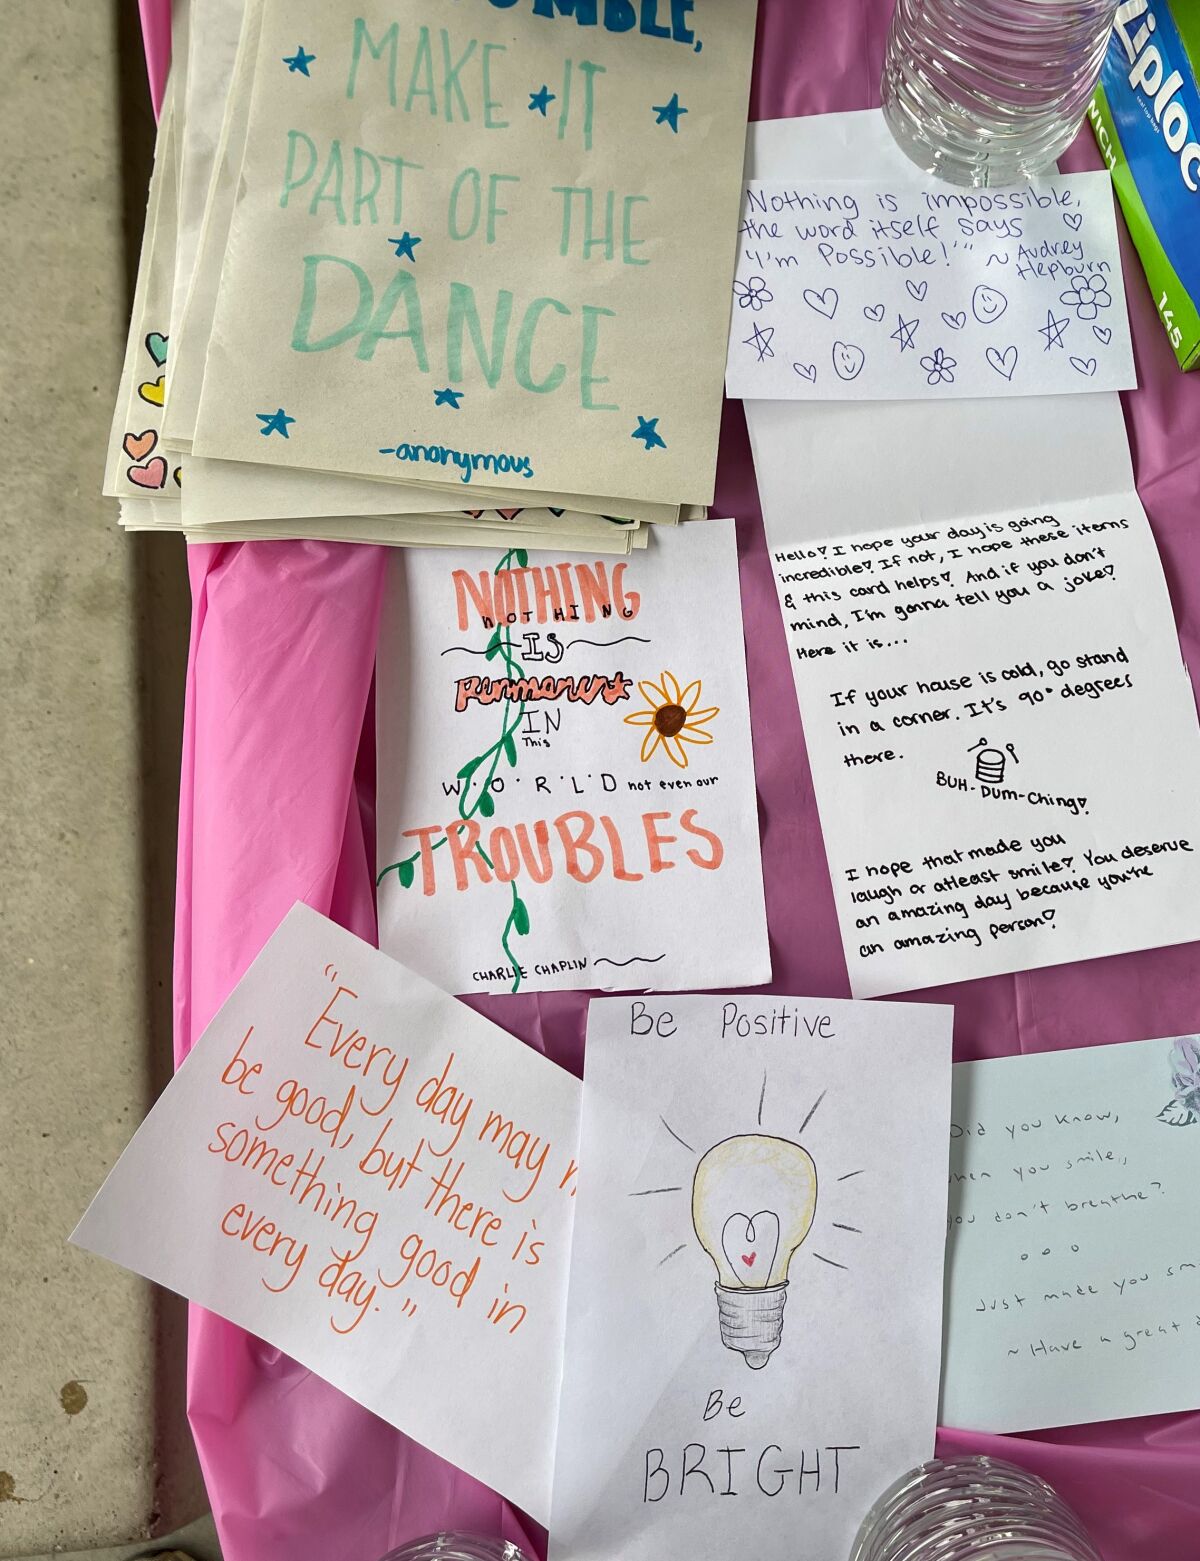 UMBLE,
MAKE IT
PART OF THE
DANCE
-anonymous
Nothing is impossible,
the word itself says
"I'm Possible!'"
~ Audrey
Hepburn
Ziploc
NICH
145
Hello! I hope your day is going
incredible! If not, I hope these items
& this card helps! And if you don't
mind, I'm gonna tell you a joke!
Here it is...
If your house is cold, go stand
in a corner. It's 90° degrees
there.
BUH-DUM-Ching!
I hope that made you
laugh or atleast smile! You deserve
an amazing day because you're
an amazing person!
NOTHING
NOTHING
IS
Permanent
IN
This
W·O·R·L·D not even our
TROUBLES
CHARLIE CHAPLIN
"Every day may n
be good, but there is
something good in
every day."
Be Positive
Be
BRIGHT
Did you know,
when you smile,
you don't breathe?
Just made you smi
~ Have a great d